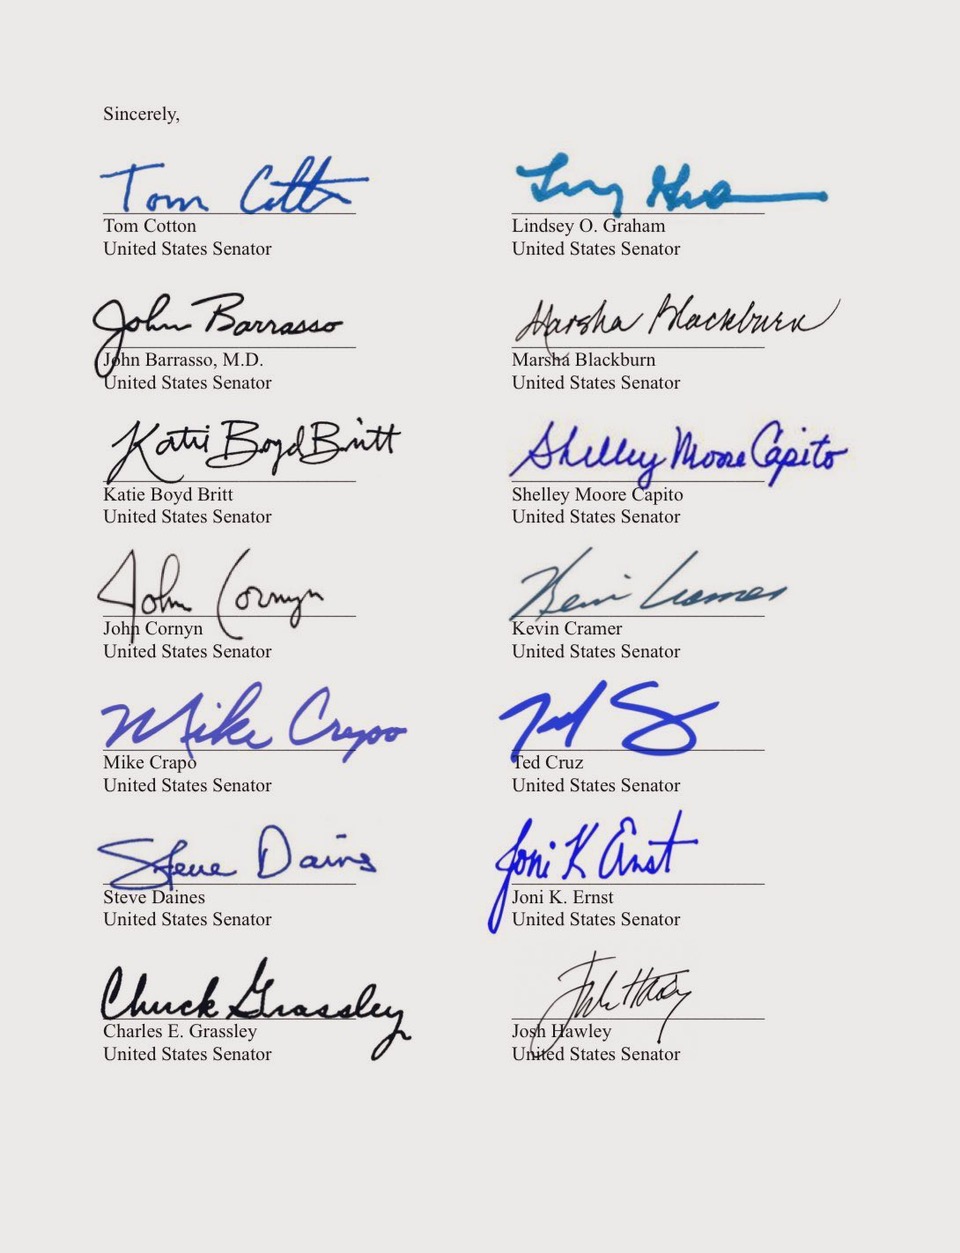 Sincerely,
Tom Cotton
Tom Cotton
United States Senator
Lindsey Graham
Lindsey O. Graham
United States Senator
John Barrasso
John Barrasso, M.D.
United States Senator
Marsha Blackburn
Marsha Blackburn
United States Senator
Katie Boyd Britt
Katie Boyd Britt
United States Senator
Shelley Moore Capito
Shelley Moore Capito
United States Senator
John Cornyn
John Cornyn
United States Senator
Kevin Cramer
Kevin Cramer
United States Senator
Mike Crapo
Mike Crapo
United States Senator
Ted
Ted Cruz
United States Senator
Steve Daines
Steve Daines
United States Senator
Joni K Ernst
Joni K. Ernst
United States Senator
Chuck Grassley
Charles E. Grassley
United States Senator
Josh Hawley
Josh Hawley
United States Senator